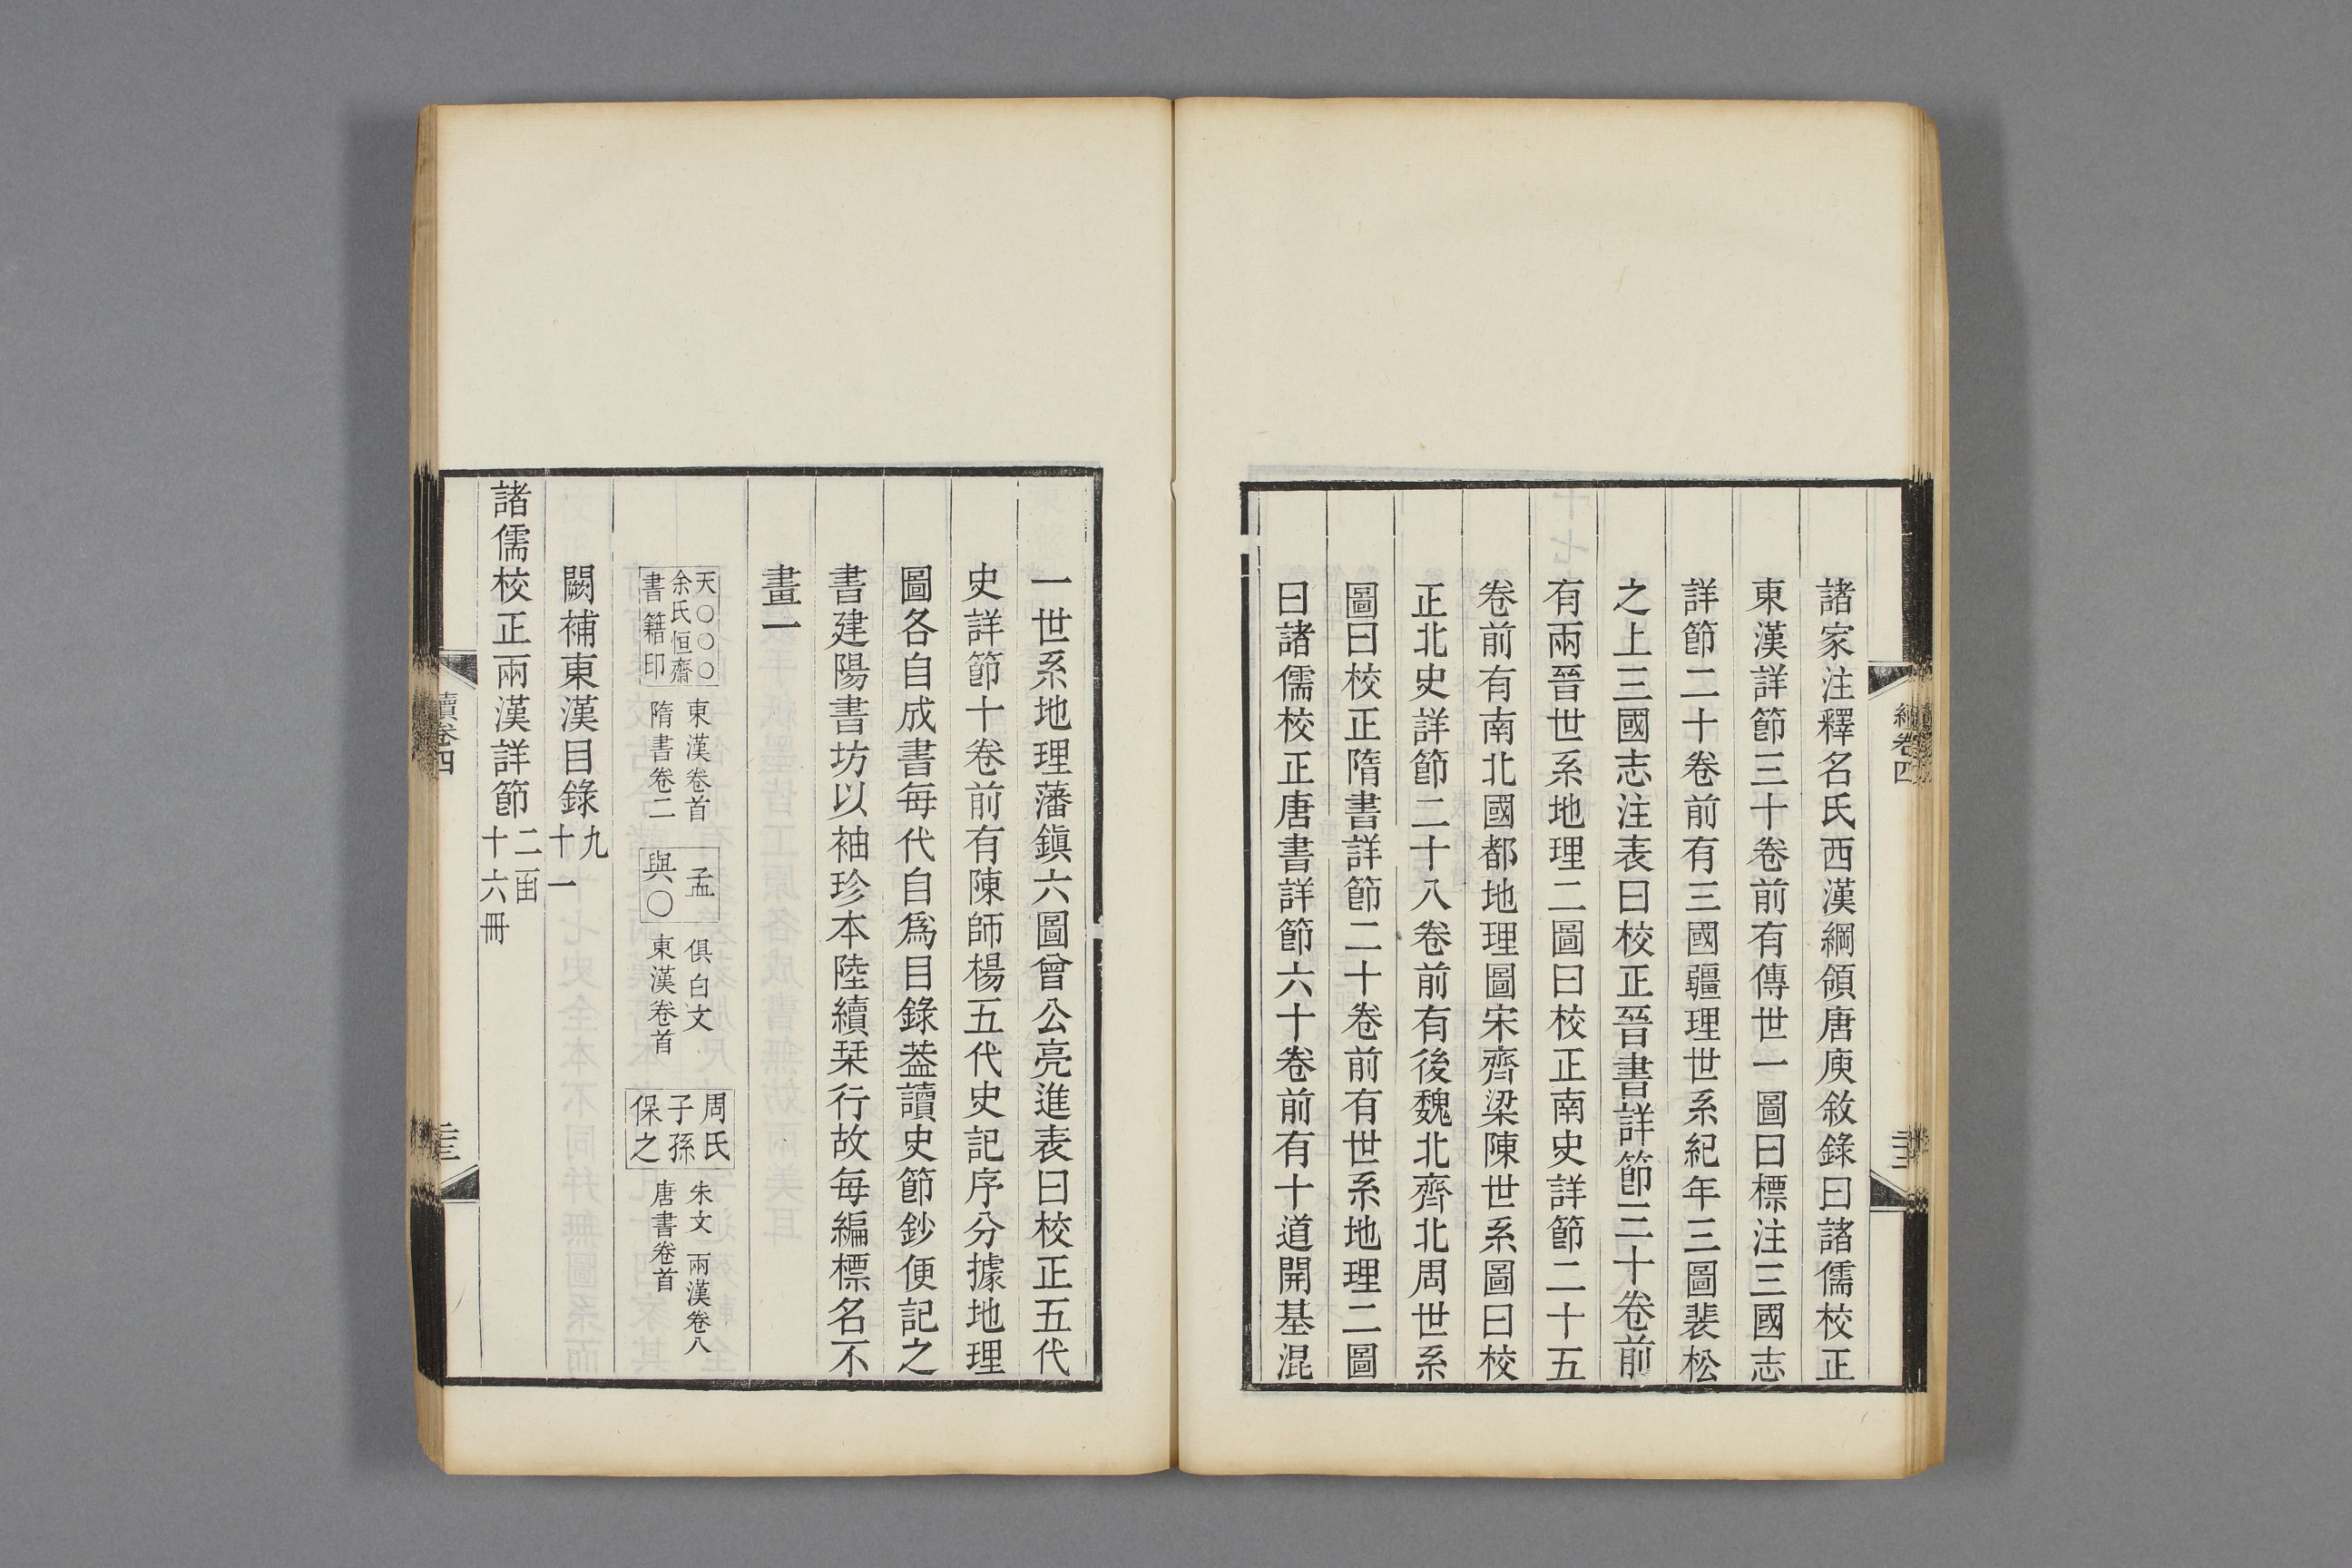 諸家注釋名氏西漢綱領唐庾敘錄曰諸儒校正
東漢詳節三十卷前有傳世一圖曰標注三國志
詳節二十卷前有三國疆理世系紀年三圖裴松
之上三國志注表曰校正晉書詳節三十卷前
有兩晉世系地理二圖曰校正南史詳節二十五
卷前有南北國都地理圖宋齊梁陳世系圖曰校
正北史詳節二十八卷前有後魏北齊北周世系
圖曰校正隋書詳節二十卷前有世系地理二圖
曰諸儒校正唐書詳節六十卷前有十道開基混
一世系地理藩鎭六圖曾公亮進表曰校正五代
史詳節十卷前有陳師楊五代史記序分據地理
圖各自成書每代自爲目錄葢讀史節鈔便記之
書建陽書坊以袖珍本陸續栞行故每編標名不
畫一
天〇〇〇
余氏恒齋
書籍印
東漢卷首
隋書卷二
孟
與〇
俱白文
東漢卷首
周氏
子孫
保之
朱文 兩漢卷八
唐書卷首
闕補東漢目錄九
十一
諸儒校正兩漢詳節二函
十六冊
續卷四